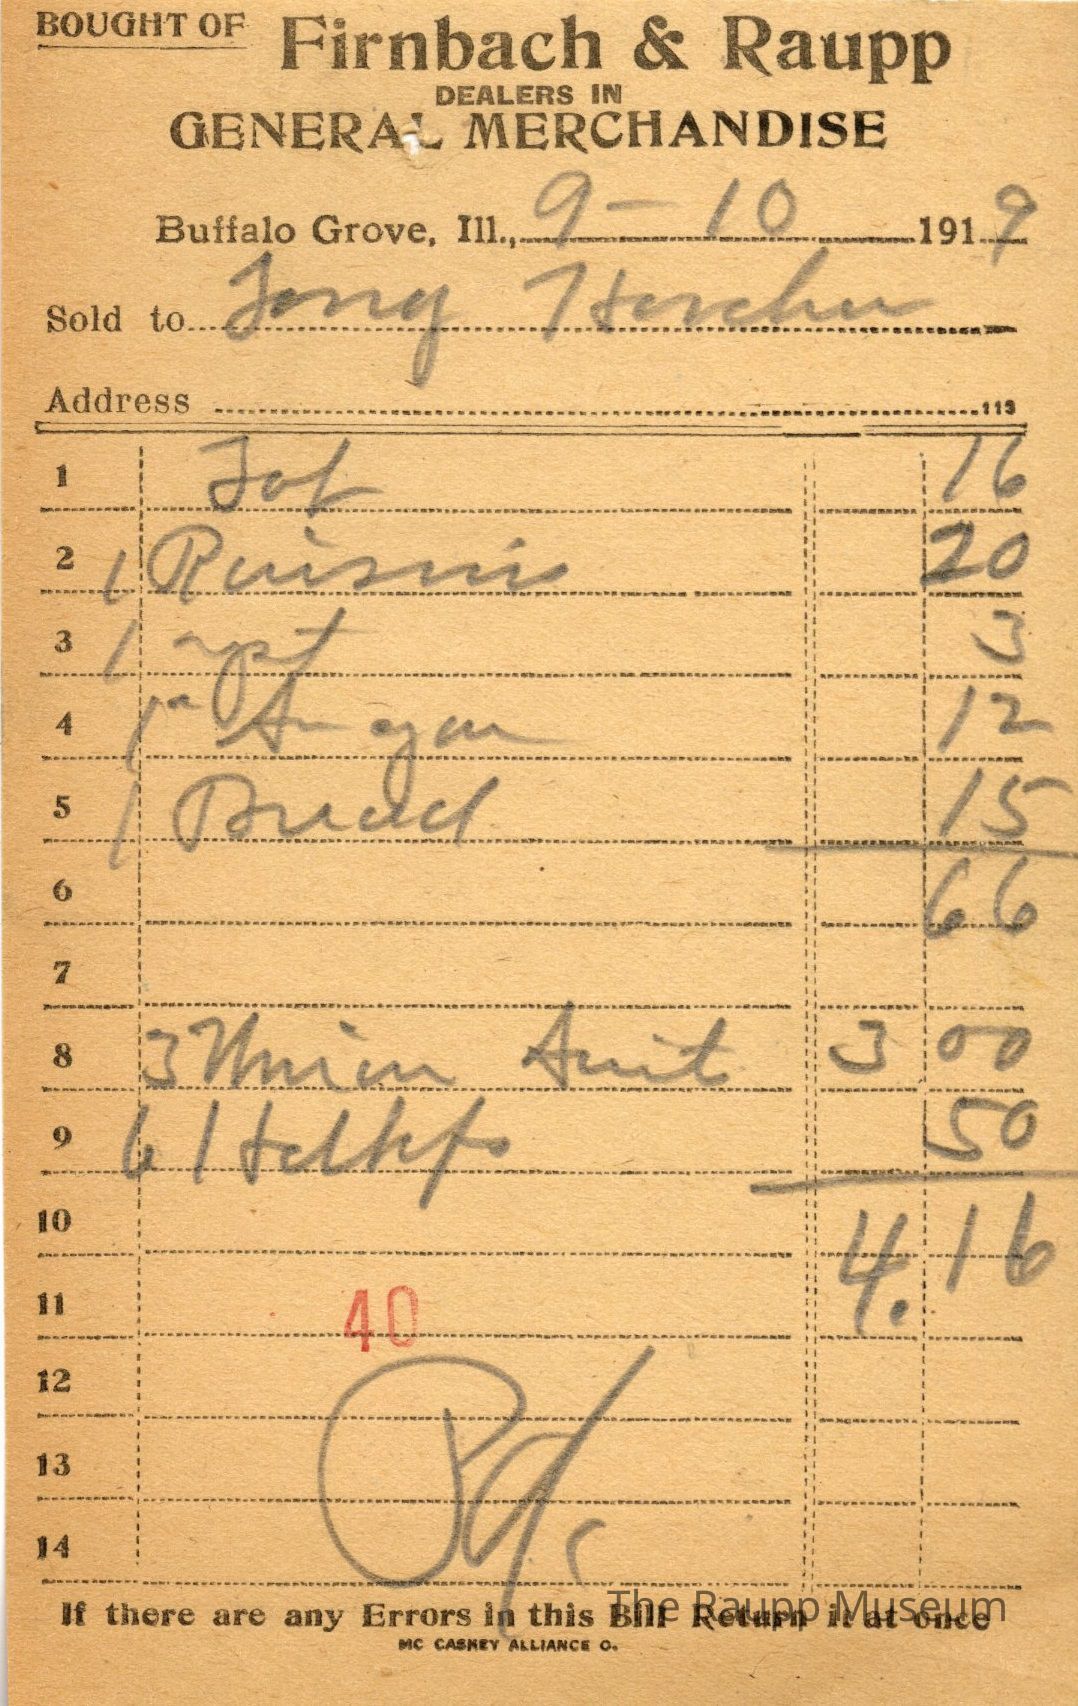 BOUGHT OF Firnbach & Raupp
DEALERS IN
GENERAL MERCHANDISE
Buffalo Grove, Ill., 9-10 1919
Sold to Tony Horcher
Address 113
1 16
2 1 Raisins 20
3 1 3
4 1 12
5 1 Bread 15
6 66
7
8 3 Union Suit 3 00
9 6 Hdkfs 50
10 4.16
11 40
12
13
14
If there are any Errors in this Bill Return it at once
The Raupp Museum
MC CASKEY ALLIANCE O.